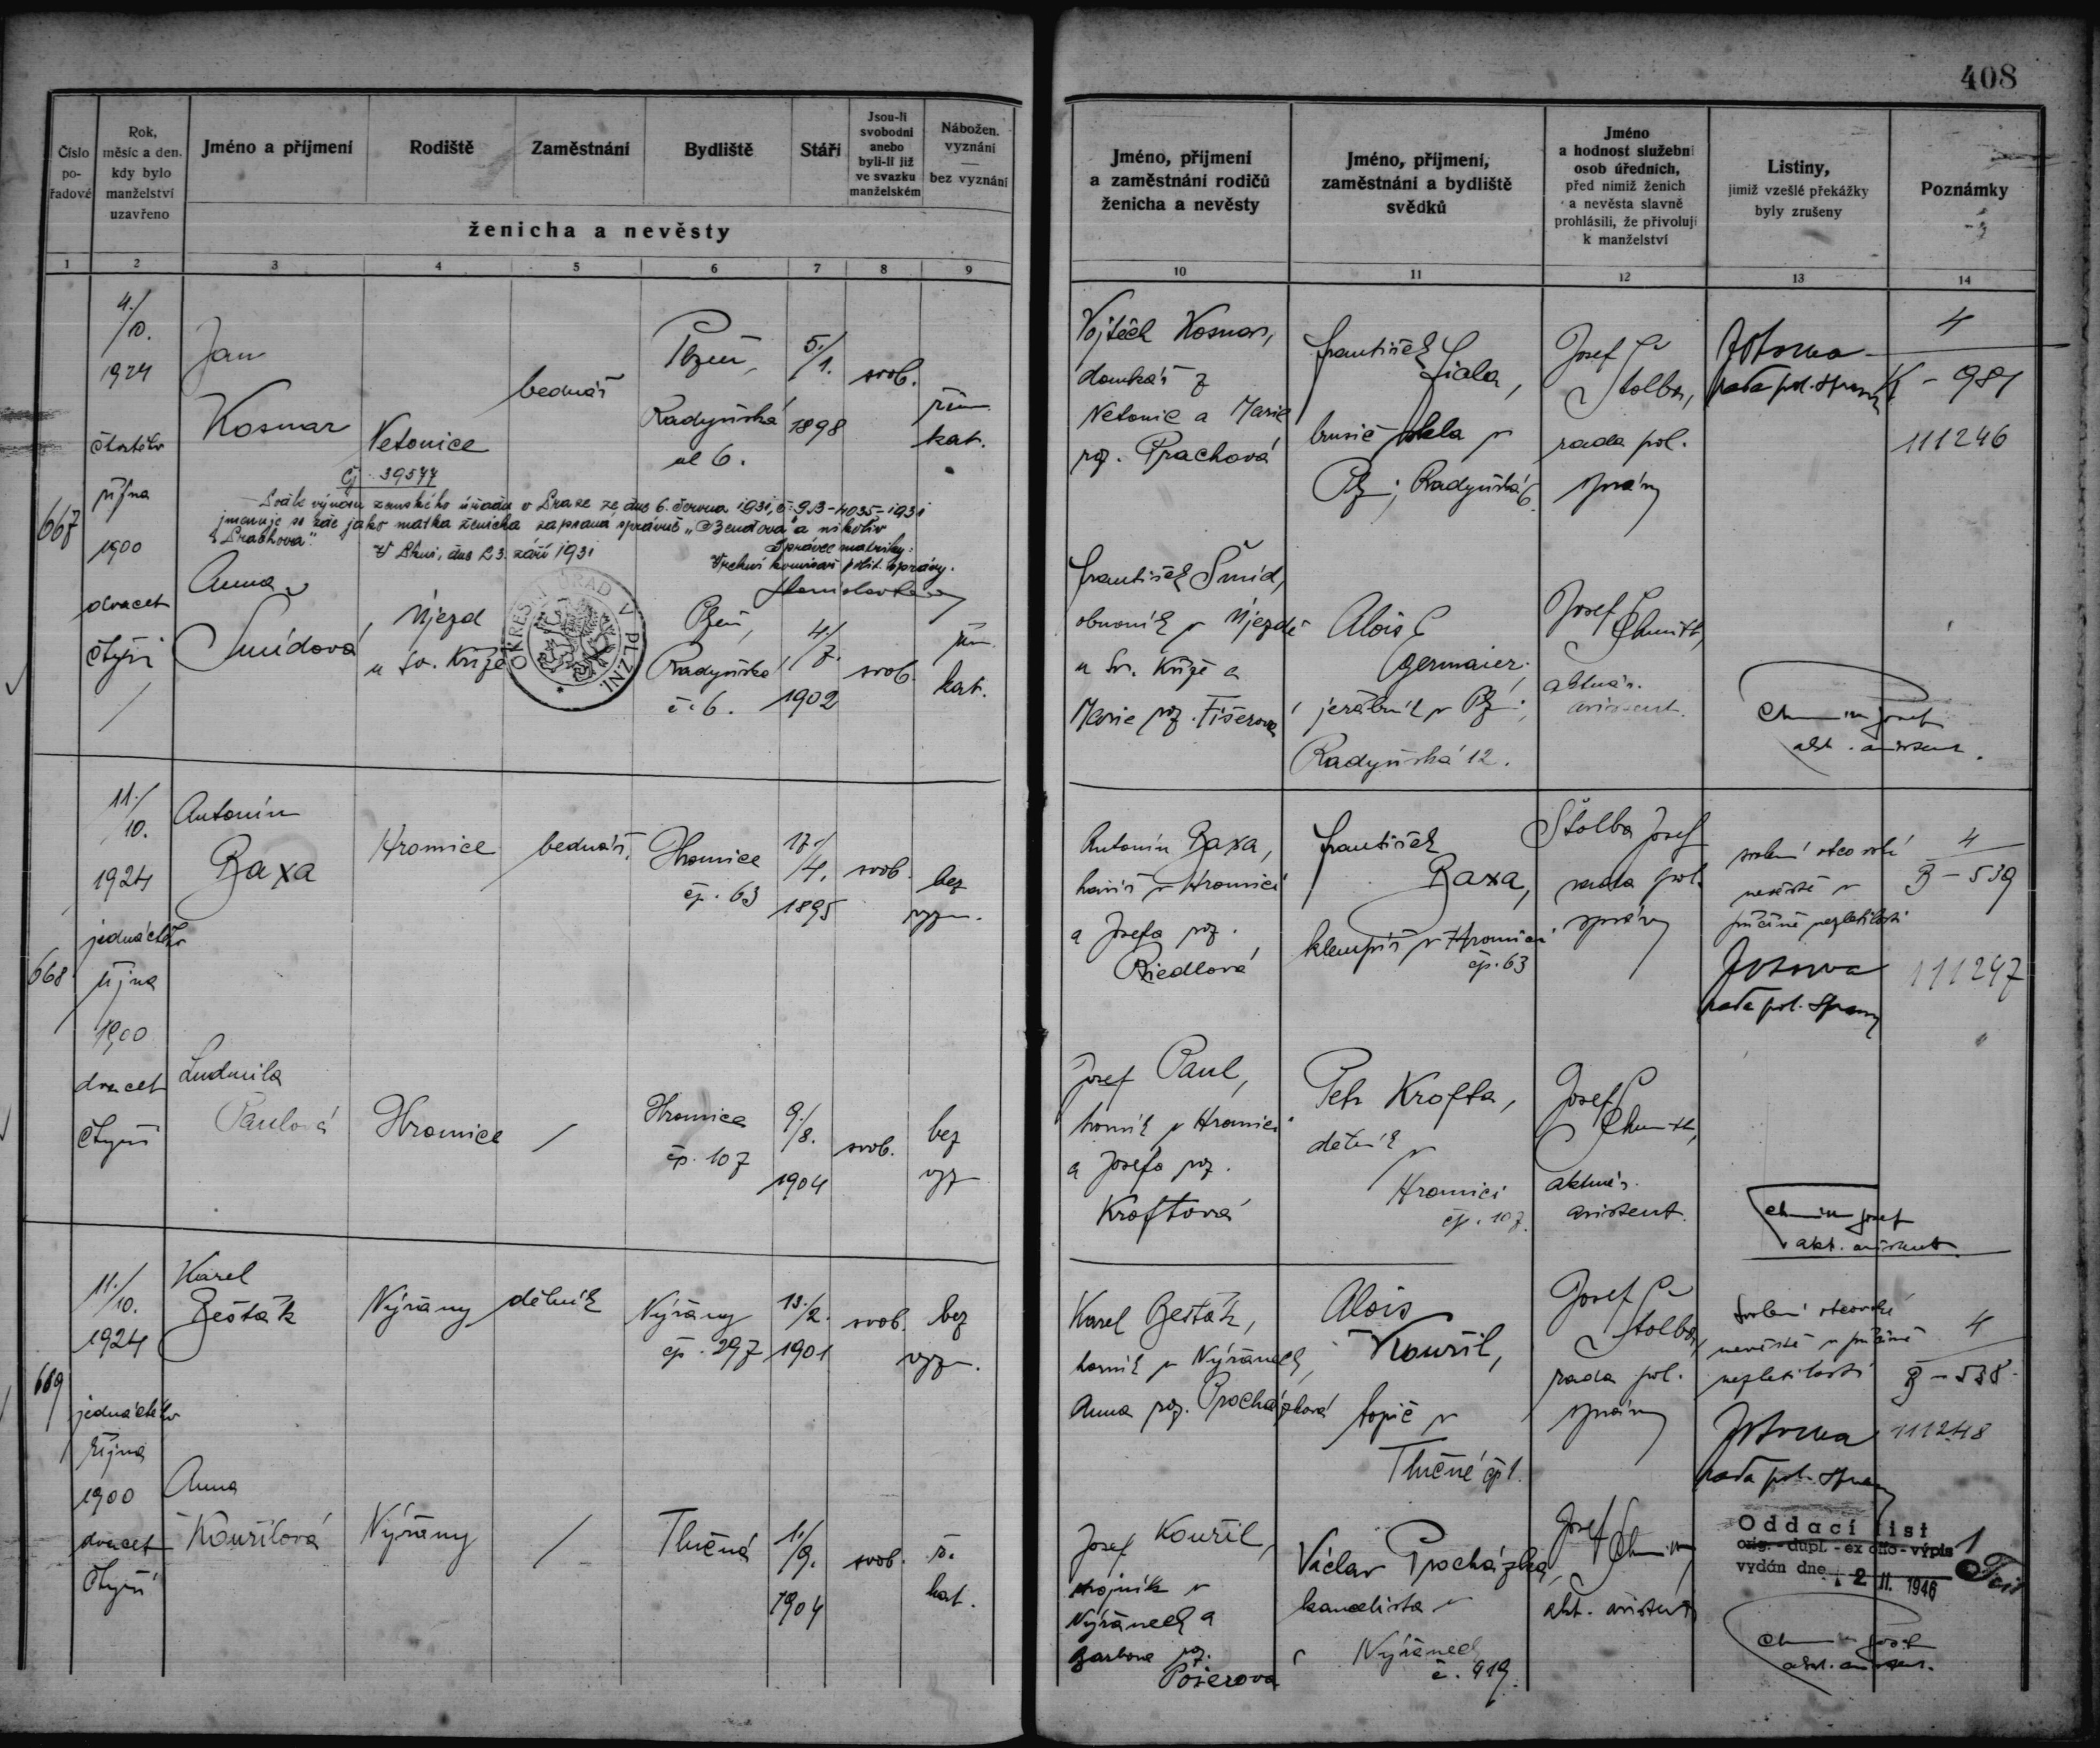 408
Číslo
po-
řadové
Rok,
měsíc a den.
kdy bylo
manželství
uzavřeno
Jméno a příjmení
Rodiště
Zaměstnání
Bydliště
Stáří
Jsou-li
svobodni
anebo
byli-li již
ve svazku
manželském
Nábožen.
vyznání
—
bez vyznání
ženicha a nevěsty
Jméno, příjmení
a zaměstnání rodičů
ženicha a nevěsty
Jméno, příjmení,
zaměstnání a bydliště
svědků
Jméno
a hodnost služební
osob úředních,
před nimiž ženich
a nevěsta slavně
prohlásili, že přivolují
k manželství
Listiny,
jimiž vzešlé překážky
byly zrušeny
Poznámky
1 2 3 4 5 6 7 8 9 10 11 12 13 14
667
4./
/10.
1924
čtvrtého
října
1900
dvacet
čtyři
Jan
Kosnar
Netonice
bednář
Plzeň,
Radyňská
ul 6.
5./
/1.
1898
svob.
řím.
kat.
Čj 39577
Dle výnosu zemského úřadu v Praze ze dne 6. června 1931, č. 9B-4035-1931
jmenuje se zde jako matka ženicha zapsaná správně „Bendová" a nikoliv
„Prachová".
V Plzni, dne 23. září 1931
Správce matriky:
Vrchní komisař polit. správy.
OKRESNÍ ÚŘAD V PLZNI.
Anna
Šmídová
Újezd
u Sv. Kříže
Plzeň,
Radyňská
č. 6.
4./
/7.
1902
svob.
řím.
kat.
Vojtěch Kosnar,
domkář z
Netonic a Marie
roz. Prachová
František
Fiala,
brusič skla v
Plzni, Radyňská 6
Josef
Štolba,
rada pol.
správy
rada pol. správy
4
K - 981
111246
František Šmíd,
obuvník v Újezdě
u Sv. Kříže a
Marie roz. Fišerová
Alois
Germaier,
jeřábník v Plzni,
Radyňská 12.
Josef
aktuár.
asistent.
akt. asistent.
668
11./
/10.
1924
jedenáctého
října
1900
dvacet
čtyři
Antonín
Baxa
Hromice
bednář.
Hromice
čp. 63
17./
/4.
1895
svob.
bez
vyzn.
Ludmila
Paulová
Hromice
/
Hromice
čp. 107
9./
/8.
1904
svob.
bez
vyz
Antonín Baxa,
havíř v Hromici
a Josefa roz.
Riedlová
František
Baxa,
klempíř v Hromici
čp. 63
Štolba Josef
rada pol.
správy
svolení otcovské
nevěstě v
příčině nezletilosti
rada pol. správy
4
B - 539
111247
Josef Paul,
horník v Hromici
a Josefa roz.
Kroftová
Petr Krofta,
dělník
v
Hromici
čp. 107.
Josef
aktuár.
asistent.
akt. asistent.
669
11./
/10.
1924
jedenáctého
října
1900
dvacet
čtyři
Karel
Bešťák
Nýřany
dělník
Nýřany
čp. 297
13./
/2.
1901
svob.
bez
vyzn.
Anna
Kouřilová
Nýřany
/
Tlučná
1./
/9.
1904
svob.
ř.
kat.
Karel Bešťák,
horník v Nýřanech,
Anna roz. Procházková
Alois
Kouřil,
topič v
Tlučné čp 1.
Josef
Štolba,
rada pol.
správy
svolení otcovské
nevěstě v příčině
nezletilosti
rada pol. správy
4
B - 538.
111248
Josef Kouřil,
strojník v
Nýřanech a
Barbora roz.
Václav Procházka,
kancelista v
Nýřanech
č. 419.
Josef
akt. asistent
Oddací list
orig. - dupl. - ex offo - výpis
vydán dne 2 II. 1946
akt. asistent.